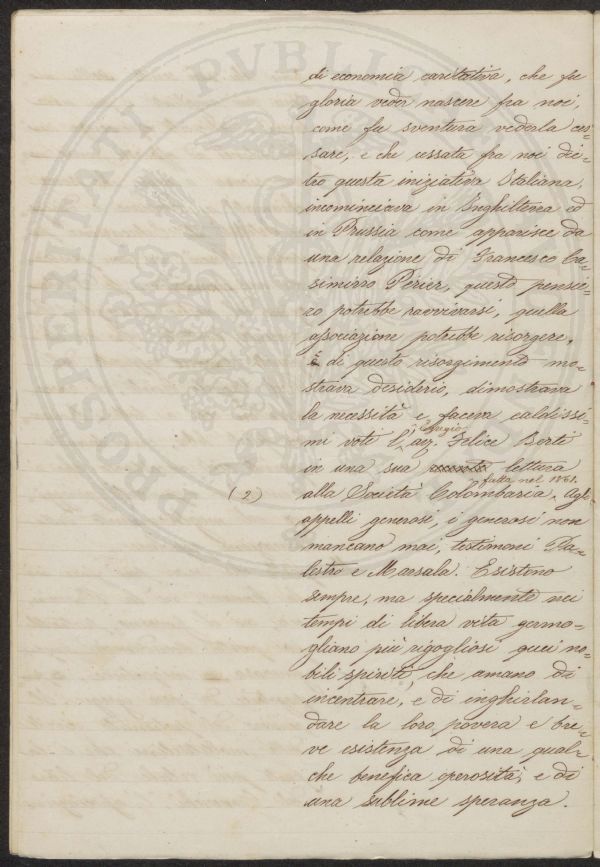 di economia caritativa, che fu
gloria veder nascere fra noi,
come fu sventura vederla ces=
sare, e che cessata fra noi die=
tro questa iniziativa Italiana,
incominciava in Inghilterra ed
in Prussia come apparisce da
una relazione di Francesco Ca=
simirro Périer, questo pensie=
ro potrebbe ravvivarsi, quella
associazione potrebbe risorgere.
E di questo risorgimento mo=
strava desiderio, dimostrava
la necessità e faceva caldissi=
mi voti l'egregio avv. Felice Berti
in una sua lettura
fatta nel 1861.
(2) alla Società Colombaria. Agli
appelli generosi, i generosi non
mancano mai, testimoni Pa=
lestro e Marsala. Esistono
sempre, ma specialmente nei
tempi di libera vita germo=
gliano più rigogliosi quei no=
bili spiriti, che amano di
incentrare, e di inghirlan=
dare la loro povera e bre=
ve esistenza di una qual=
che benefica operosità, e di
una sublime speranza.
PROSPERITATI PVBLICAE